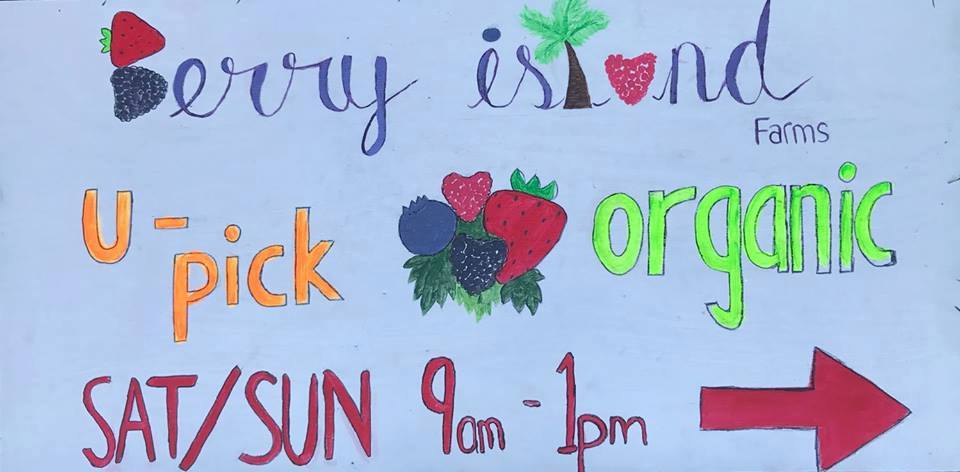 Berry island
Farms
u-pick organic
SAT/SUN 9am-1pm